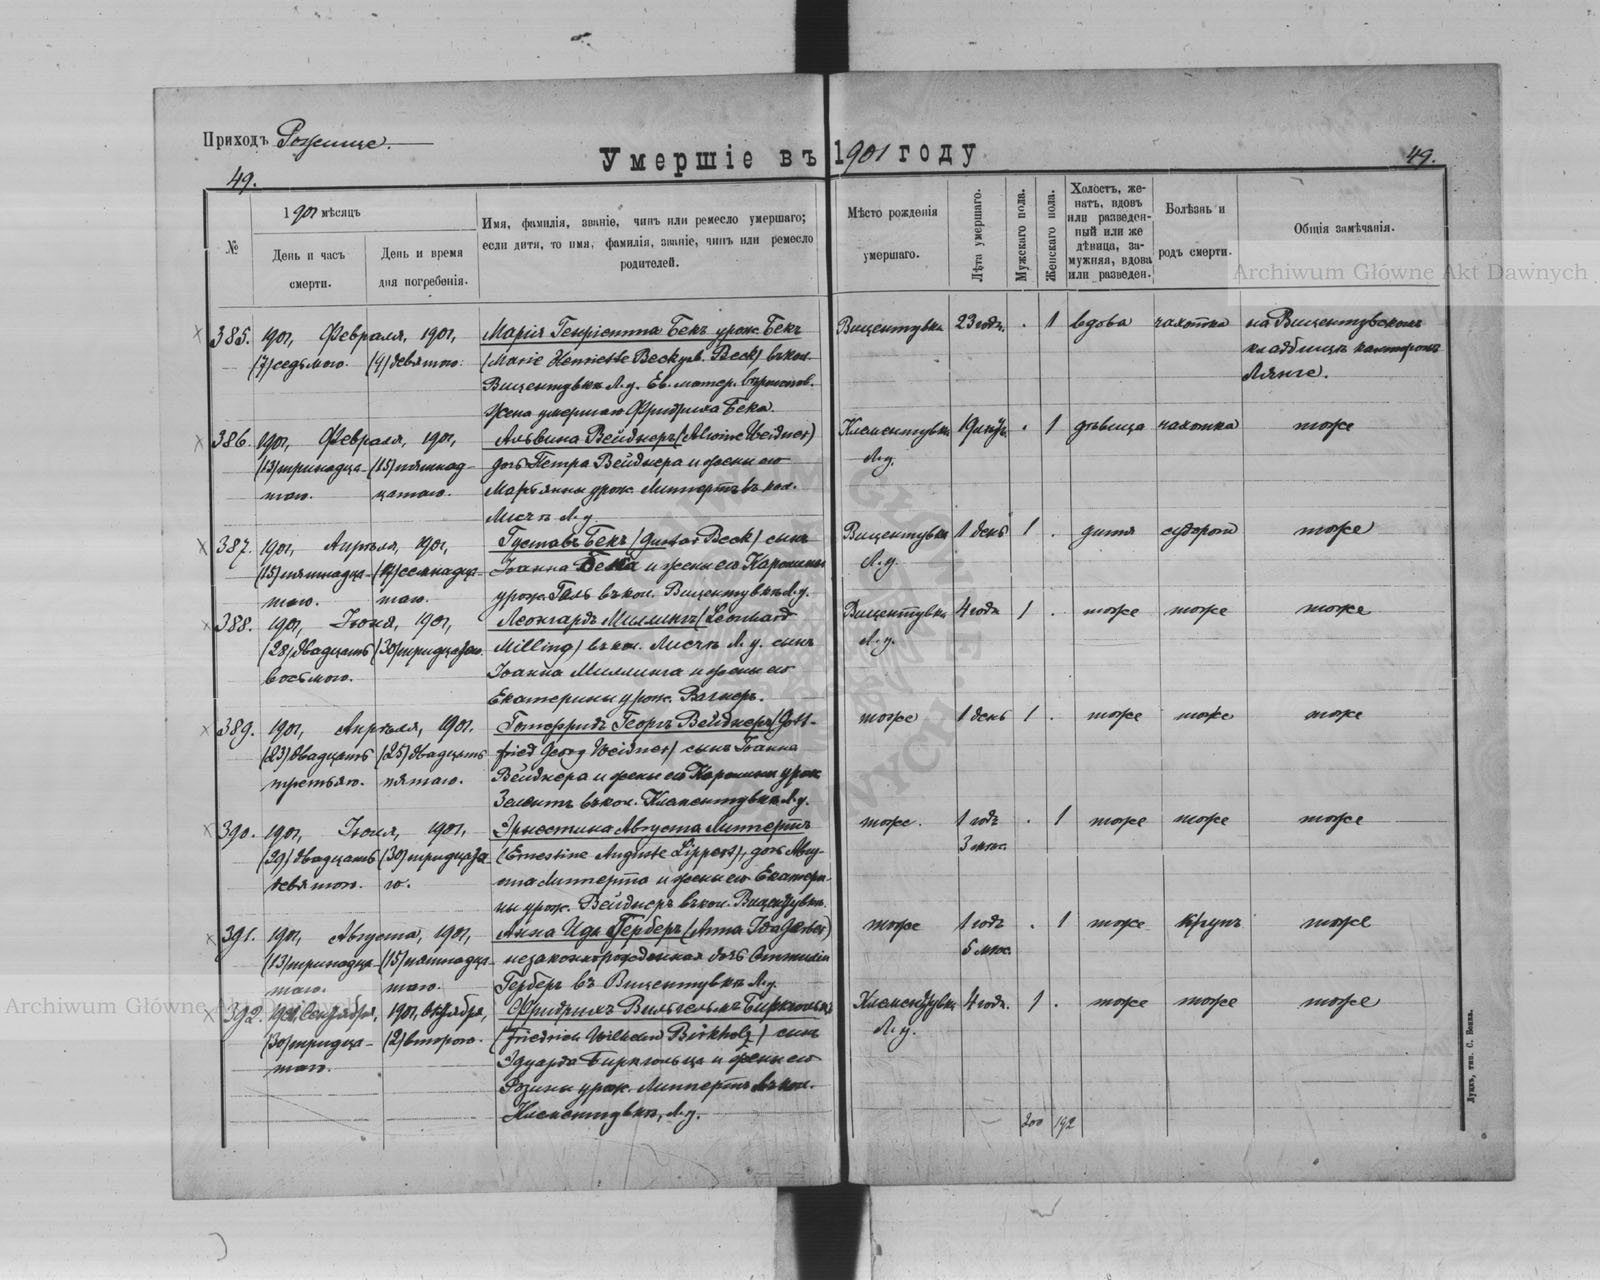 Приходъ Рожище.
Умершіе въ 1901 году
49.
49.
№
1901 мѣсяцъ
День и часъ смерти.
День и время дня погребенія.
Имя, фамилія, званіе, чинъ или ремесло умершаго;
если дитя, то имя, фамилія, званіе, чинъ или ремесло
родителей.
Мѣсто рожденія
умершаго.
Лѣта умершаго.
Мужскаго пола.
Женскаго пола.
Холостъ, же-
натъ, вдовъ
или разведен-
ный или же
дѣвица, за-
мужняя, вдова
или разведен.
Болѣзнь и
родъ смерти.
Общія замѣчанія.
385. 1901, Февраля, 1901, Марія Генріетта Бекъ урож. Бекъ Вицентувка 23 года. . 1 вдова чахотка на Вицентувскомъ
(7) седьмого. (9) девятого. (Marie Henriette Beck Beck) въ кол. кладбищѣ канторомъ
Вицентувкѣ Л. у. Ев. Лянге.
жена умершаго Фридриха Бека.
386. 1901, Февраля, 1901, Альвина Вейднеръ (Alwine Weidner) Клементувка 19 . 1 дѣвица чахотка тоже
(13) тринадца- (15) пятнад- дочь Петра Вейднера и жены его Л. у.
таго. цатаго. Марьянны урож. Липпертъ въ кол.
Л. у.
387. 1901, Апрѣля, 1901, Густавъ Бекъ (Gustav Beck) сынъ Вицентувка 1 день 1 . дитя судороги тоже
(15) пятнадца- (17) семнадца- Іоанна Бека и жены его Каролины Л. у.
таго. таго. урож. въ кол. Вицентувкѣ Л. у.
388. 1901, Іюня, 1901, Леонгардъ Миллингъ (Leonhard Вицентувка 4 года 1 . тоже тоже тоже
(28) двадцать (30) тридцатаго. Milling) въ кол. Л. у. сынъ Л. у.
восьмого. Іоанна Миллинга и жены его
Екатерины урож. Вагнеръ.
389. 1901, Апрѣля, 1901, Готфридъ Георгъ Вейднеръ (Gott- тоже 1 день 1 . тоже тоже тоже
(23) двадцать (25) двадцать fried Georg Weidner) сынъ Іоанна
третьяго. пятаго. Вейднера и жены его Каролины урож.
въ кол. Клементувкѣ Л. у.
390. 1901, Іюня, 1901, Эрнестина Августа Липпертъ тоже. 1 годъ . 1 тоже тоже тоже
(29) двадцать (30) тридцата- (Ernestine Auguste Lippert), дочь Авгу- 3 мѣс.
девятого. го. ста Липперта и жены его Екатери-
ны урож. Вейднеръ въ кол. Вицентувкѣ.
391. 1901, Августа, 1901, Анна Ида Герберъ (Anna Ida Gerber) тоже 1 годъ . 1 тоже крупъ тоже
(13) тринадца- (15) пятнадца- незаконнорожденная дочь Оттиліи 5 мѣс.
таго. таго. Герберъ въ Вицентувкѣ Л. у.
392. 1901, Сентября, 1901, Октября, Фридрихъ Вильгельмъ Биркгольцъ Клементувка 4 года. 1 . тоже тоже тоже
(30) тридца- (2) второго. (Friedrich Wilhelm Birkholz) сынъ Л. у.
таго. Эдуарда Биркгольца и жены его
Розины урож. Липпертъ въ кол.
Клементувкѣ, Л. у.
200 192
Луцкъ, тип. С. Бонка.
Archiwum Główne Akt Dawnych
Archiwum Główne Akt Dawnych